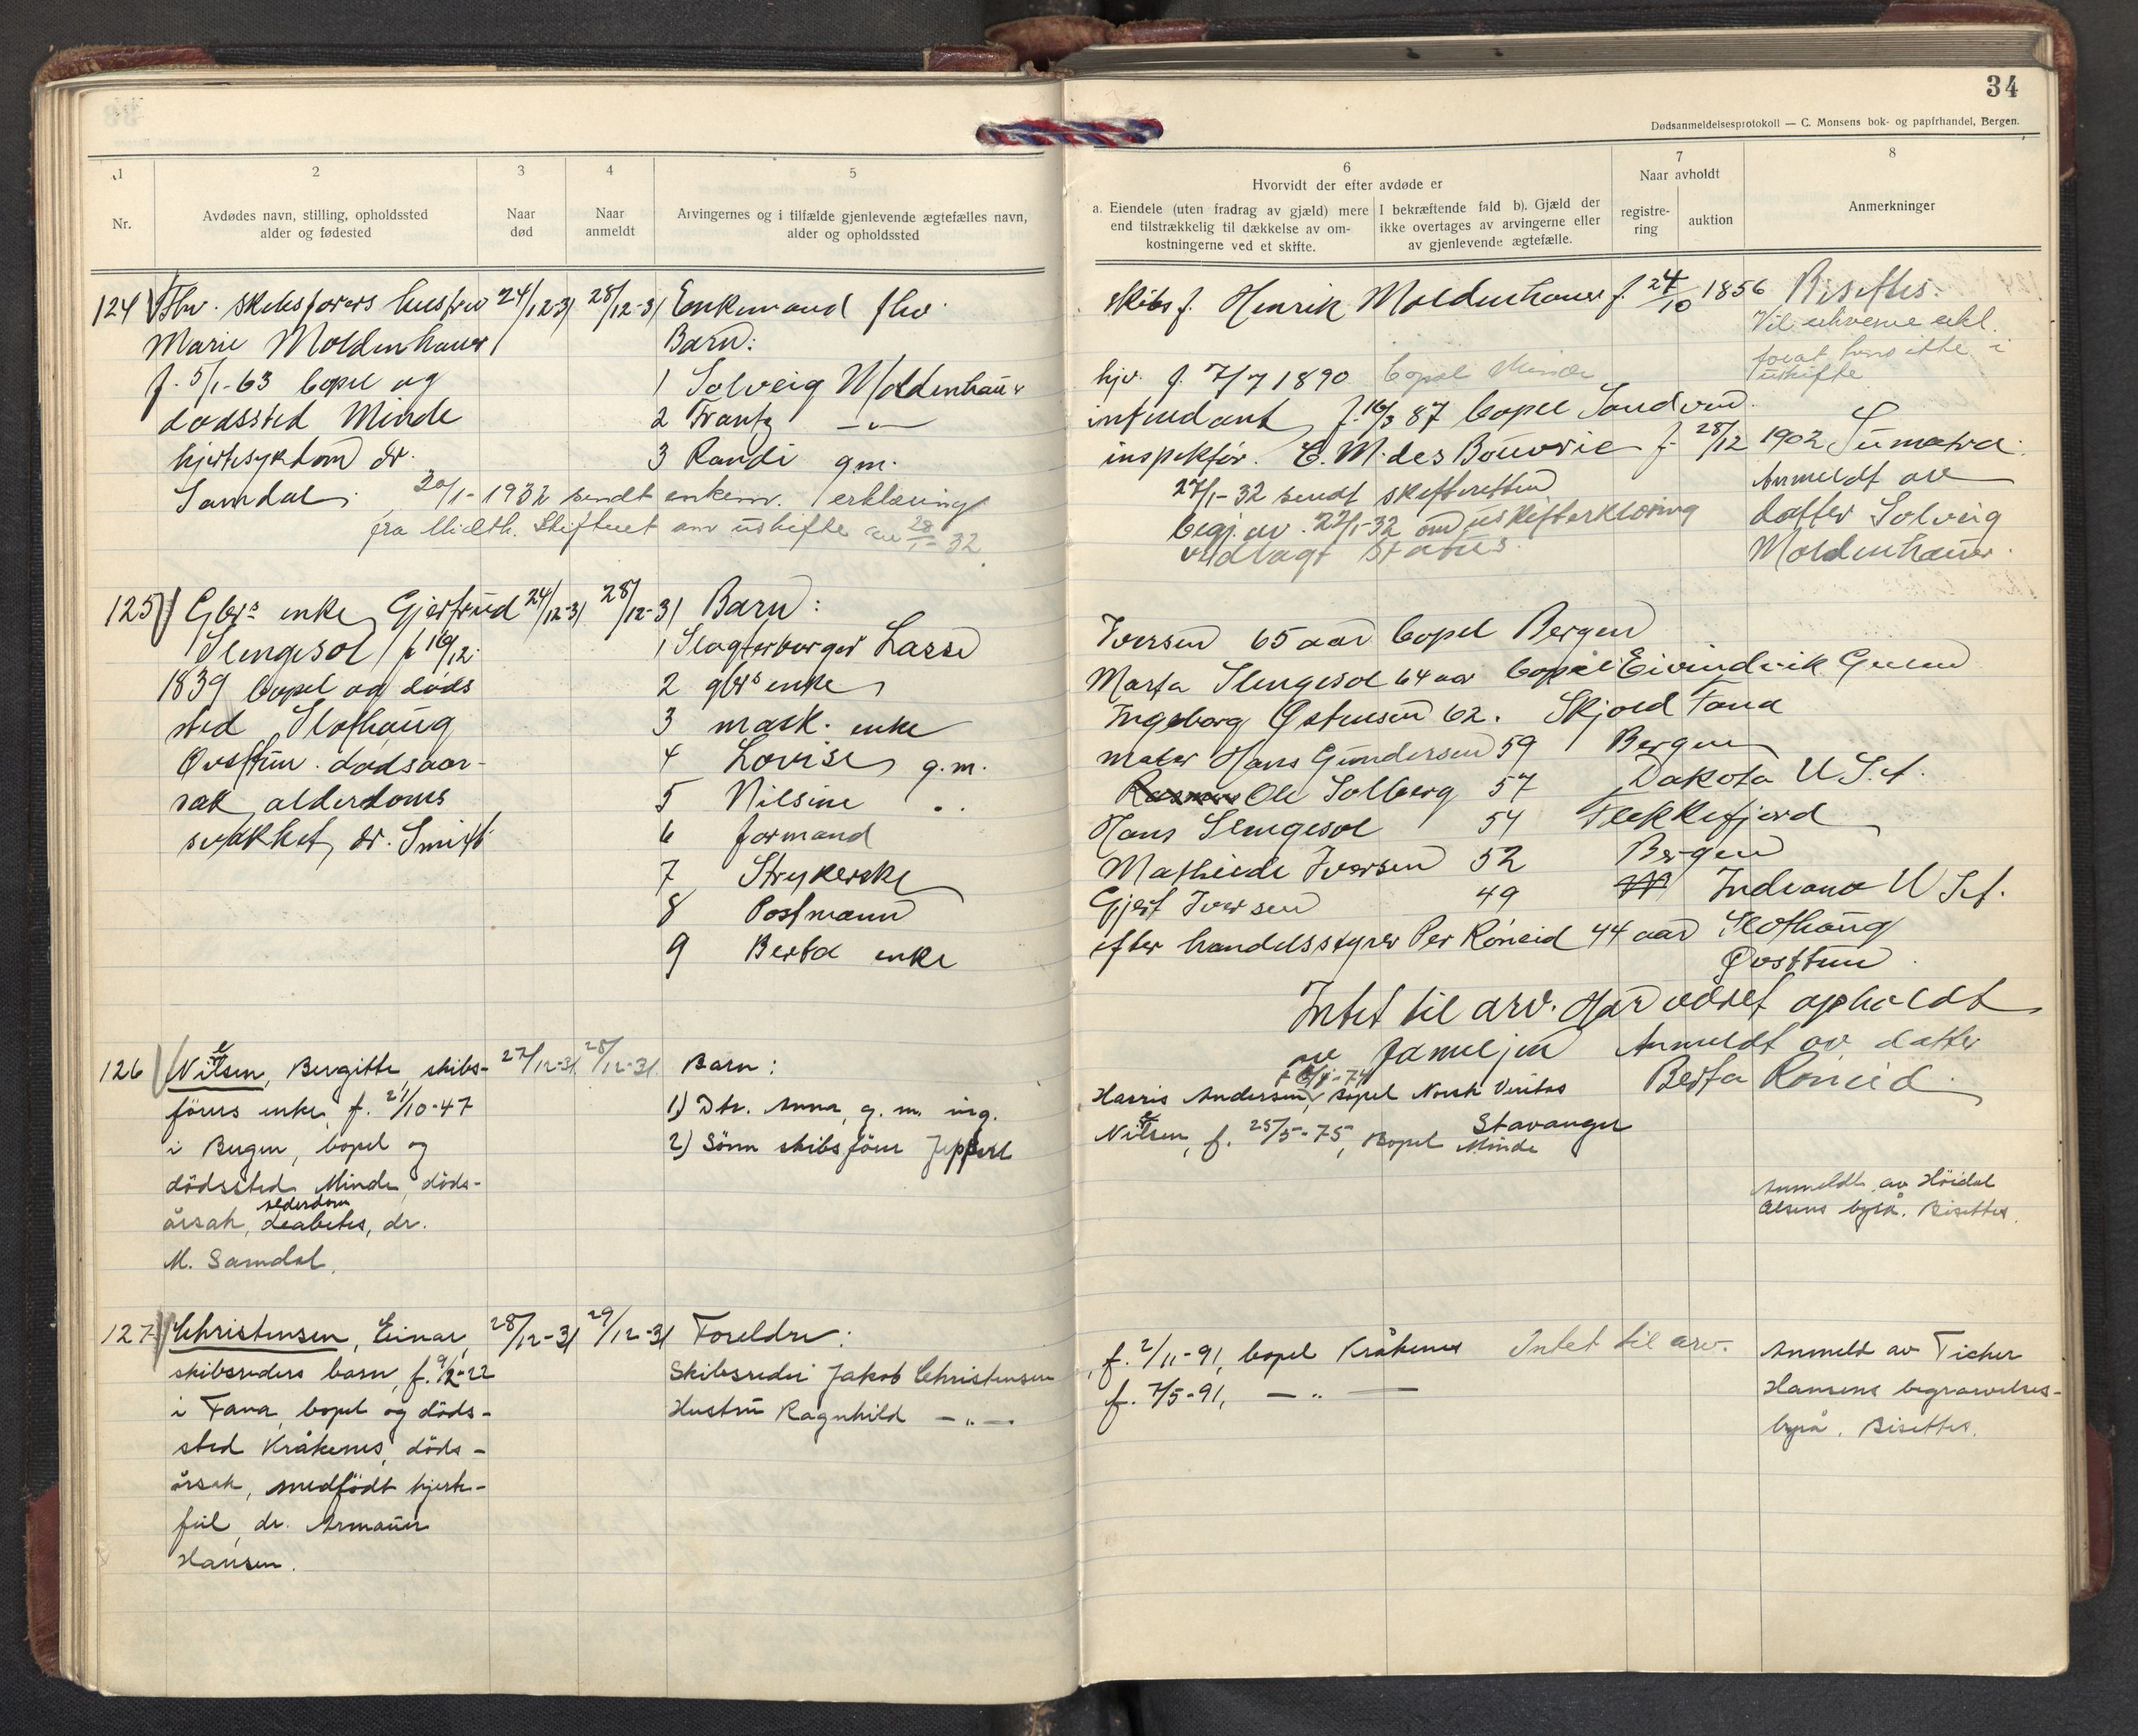 34
Dødsanmeldelsesprotokoll — C. Monsens bok- og papfrhandel, Bergen.
1
2
3
4
5
6
7
8
Nr.
Avdødes navn, stilling, opholdssted
alder og fødested
Naar
død
Naar
anmeldt
Arvingernes og i tilfælde gjenlevende ægtefælles navn,
alder og opholdssted
Hvorvidt der efter avdøde er
a. Eiendele (uten fradrag av gjæld) mere
end tilstrækkelig til dækkelse av om-
kostningerne ved et skifte.
I bekræftende fald b). Gjæld der
ikke overtages av arvingerne eller
av gjenlevende ægtefælle.
Naar avholdt
registre-
ring
auktion
Anmerkninger
124 Fhv. skibsførers hustru 24/12-31 28/12-31 Enkemand fhv. skibsf. Henrik Moldenhauer f. 24/10 1856 Bisettes.
Marie Moldenhauer Barn:
f. 5/1-63 bopel og 1 Solveig Moldenhauer hjv. f. 7/7 1890 bopel Minde
dødssted Minde 2 Frantz —"— intendant f. 16/3 87 bopel Sandvin
hjertesykdom dr. 3 Randi g.m. inspektør. E. M. des Bouvrie f. 28/12 1902 Sumatra.
Samdal. 30/1-1932 sendt enkem. erklæring
fra Midth. Skifteret om uskifte av 28/1-32
27/1-32 sendt skifteretten
begj. av 22/1-32 om uskifteerklæring
vedlagt status.
Anmeldt av
datter Solveig
Moldenhauer.
125 Gbrs enke Gjertrud 24/12-31 28/12-31 Barn:
Slengesol f 16/12
1839 bopel og døds
sted Slothaug
Øvsttun. dødsaar-
sak alderdoms
svakhet, dr. Smitt
1 Slagterborger Lasse Iversen 65 aar bopel Bergen
2 gbrs enke Marta Slengesol 64 aar bopel Eivindvik Gulen
3 mask. enke Ingeborg Østensen 62. Skjold Fana
4 Lovise g.m. maler Hans Gundersen 59 Bergen
5 Nilsine " Ole Solberg 57 Dakota U.S.A.
6 formand Hans Slengesol 54 Flekkefjord
7 Strykerske Mathilde Iversen 52 Bergen
8 Postmann Gjert Iversen 49 Indiana U.S.A.
9 Berta enke efter handelsstyrer Per Røneid 44 aar Slothaug
Øvsttun.
Intet til arv. Har været opholdt
av familjen Anmeldt av datter
Berta Røneid.
126 Nilsen, Bergitte, skibs- 27/12-31 28/12-31 Barn:
førers enke, f. 21/10-47 1) Dtr. Anna, g. m. ing. Harris Andersen, bopel Norsk Veritas
Stavanger
i Bergen, bopel og 2) Sønn skibsfører Jeppe Nilsen, f. 25/5-75, Bopel Minde
dödssted Minde, döds-
alderdom
årsak, diabetes, dr.
M. Samdal.
Anmeldt av Höidal
Olsens byrå. Bisettes.
127 Christensen, Einar, 28/12-31 29/12-31 Foreldre:
skibsreders barn, f. 9/2-22 Skibsreder Jakob Christensen f. 2/11-91, bopel Kråkenes Intet til arv. Anmeldt av Ticher
i Fana, bopel og döds- Hustru Ragnhild —"— f. 7/5-91, —"— Hansens begravelses-
sted Kråkenes, döds- byrå. Bisettes.
årsak, medfödt hjerte-
feil, dr. Armauer
Hansen.